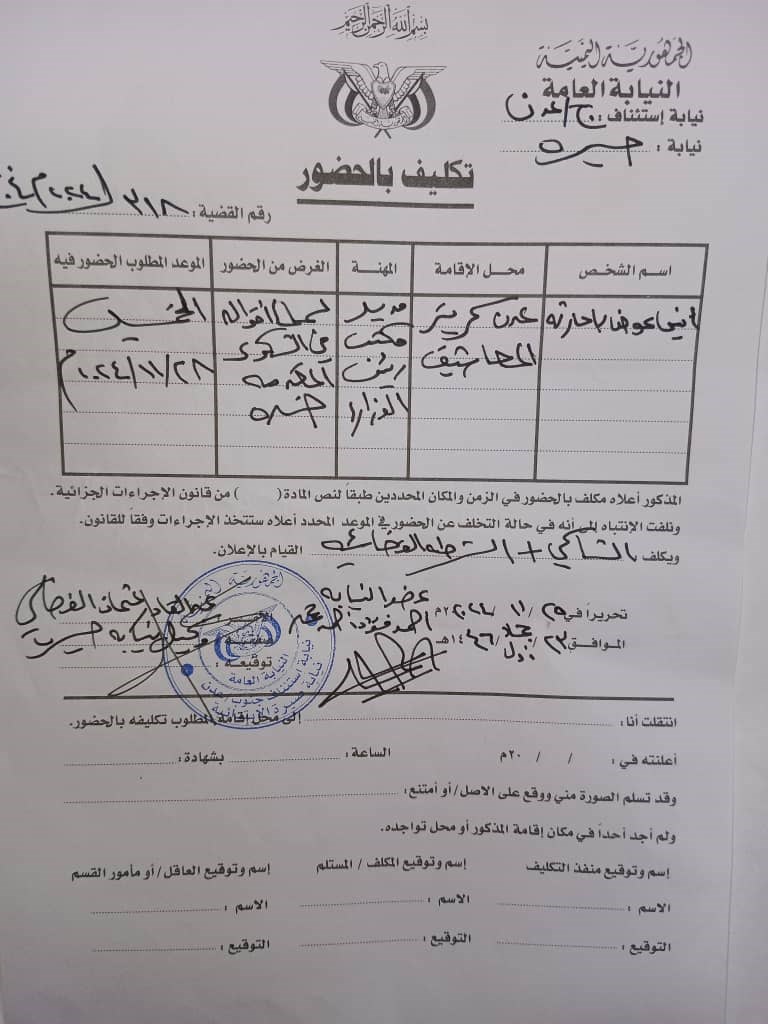 بسم الله الرحمن الرحيم
الجمهورية اليمنية
النيابة العامة
نيابة إستئناف : ج/عدن
نيابة : صيره
تكليف بالحضور
رقم القضية : ٣١٨ / ٢٠٢٤م
اسم الشخص
محل الإقامة
المهنة
الغرض من الحضور
الموعد المطلوب الحضور فيه
أنيس عوض باحارثه
عدن كريتر
المعاشيق
مدير
مكتب
رئيس
الوزراء
لسماع أقواله
في الشكوى
المقدمة
الخميس
٢٠٢٤/١١/٢٨م
المذكور أعلاه مكلف بالحضور في الزمن والمكان المحددين طبقاً لنص المادة ( ) من قانون الإجراءات الجزائية.
ونلفت الإنتباه إلى أنه في حالة التخلف عن الحضور في الموعد المحدد أعلاه ستتخذ الإجراءات وفقاً للقانون.
ويكلف الشاكي + الشرطه القضائيه القيام بالإعلان.
تحريراً في ٢٥ / ١١ / ٢٠٢٤م
الموافق ٢٣ / / ١٤٤٦هـ
عضو النيابه
وكيل نيابه صيره
توقيعه :
الجمهورية اليمنية
النيابة العامة
نيابة استئناف جنوب عدن
نيابة صيرة الابتدائية
انتقلت أنا : إلى محل إقامة المطلوب تكليفه بالحضور.
أعلنته في : / / ٢٠م الساعة : بشهادة :
وقد تسلم الصورة مني ووقع على الاصل/ أو أمتنع :
ولم أجد أحداً في مكان إقامة المذكور أو محل تواجده.
إسم وتوقيع منفذ التكليف
إسم وتوقيع المكلف / المستلم
إسم وتوقيع العاقل/ أو مأمور القسم
الاسم :
الاسم :
الاسم :
التوقيع :
التوقيع :
التوقيع :